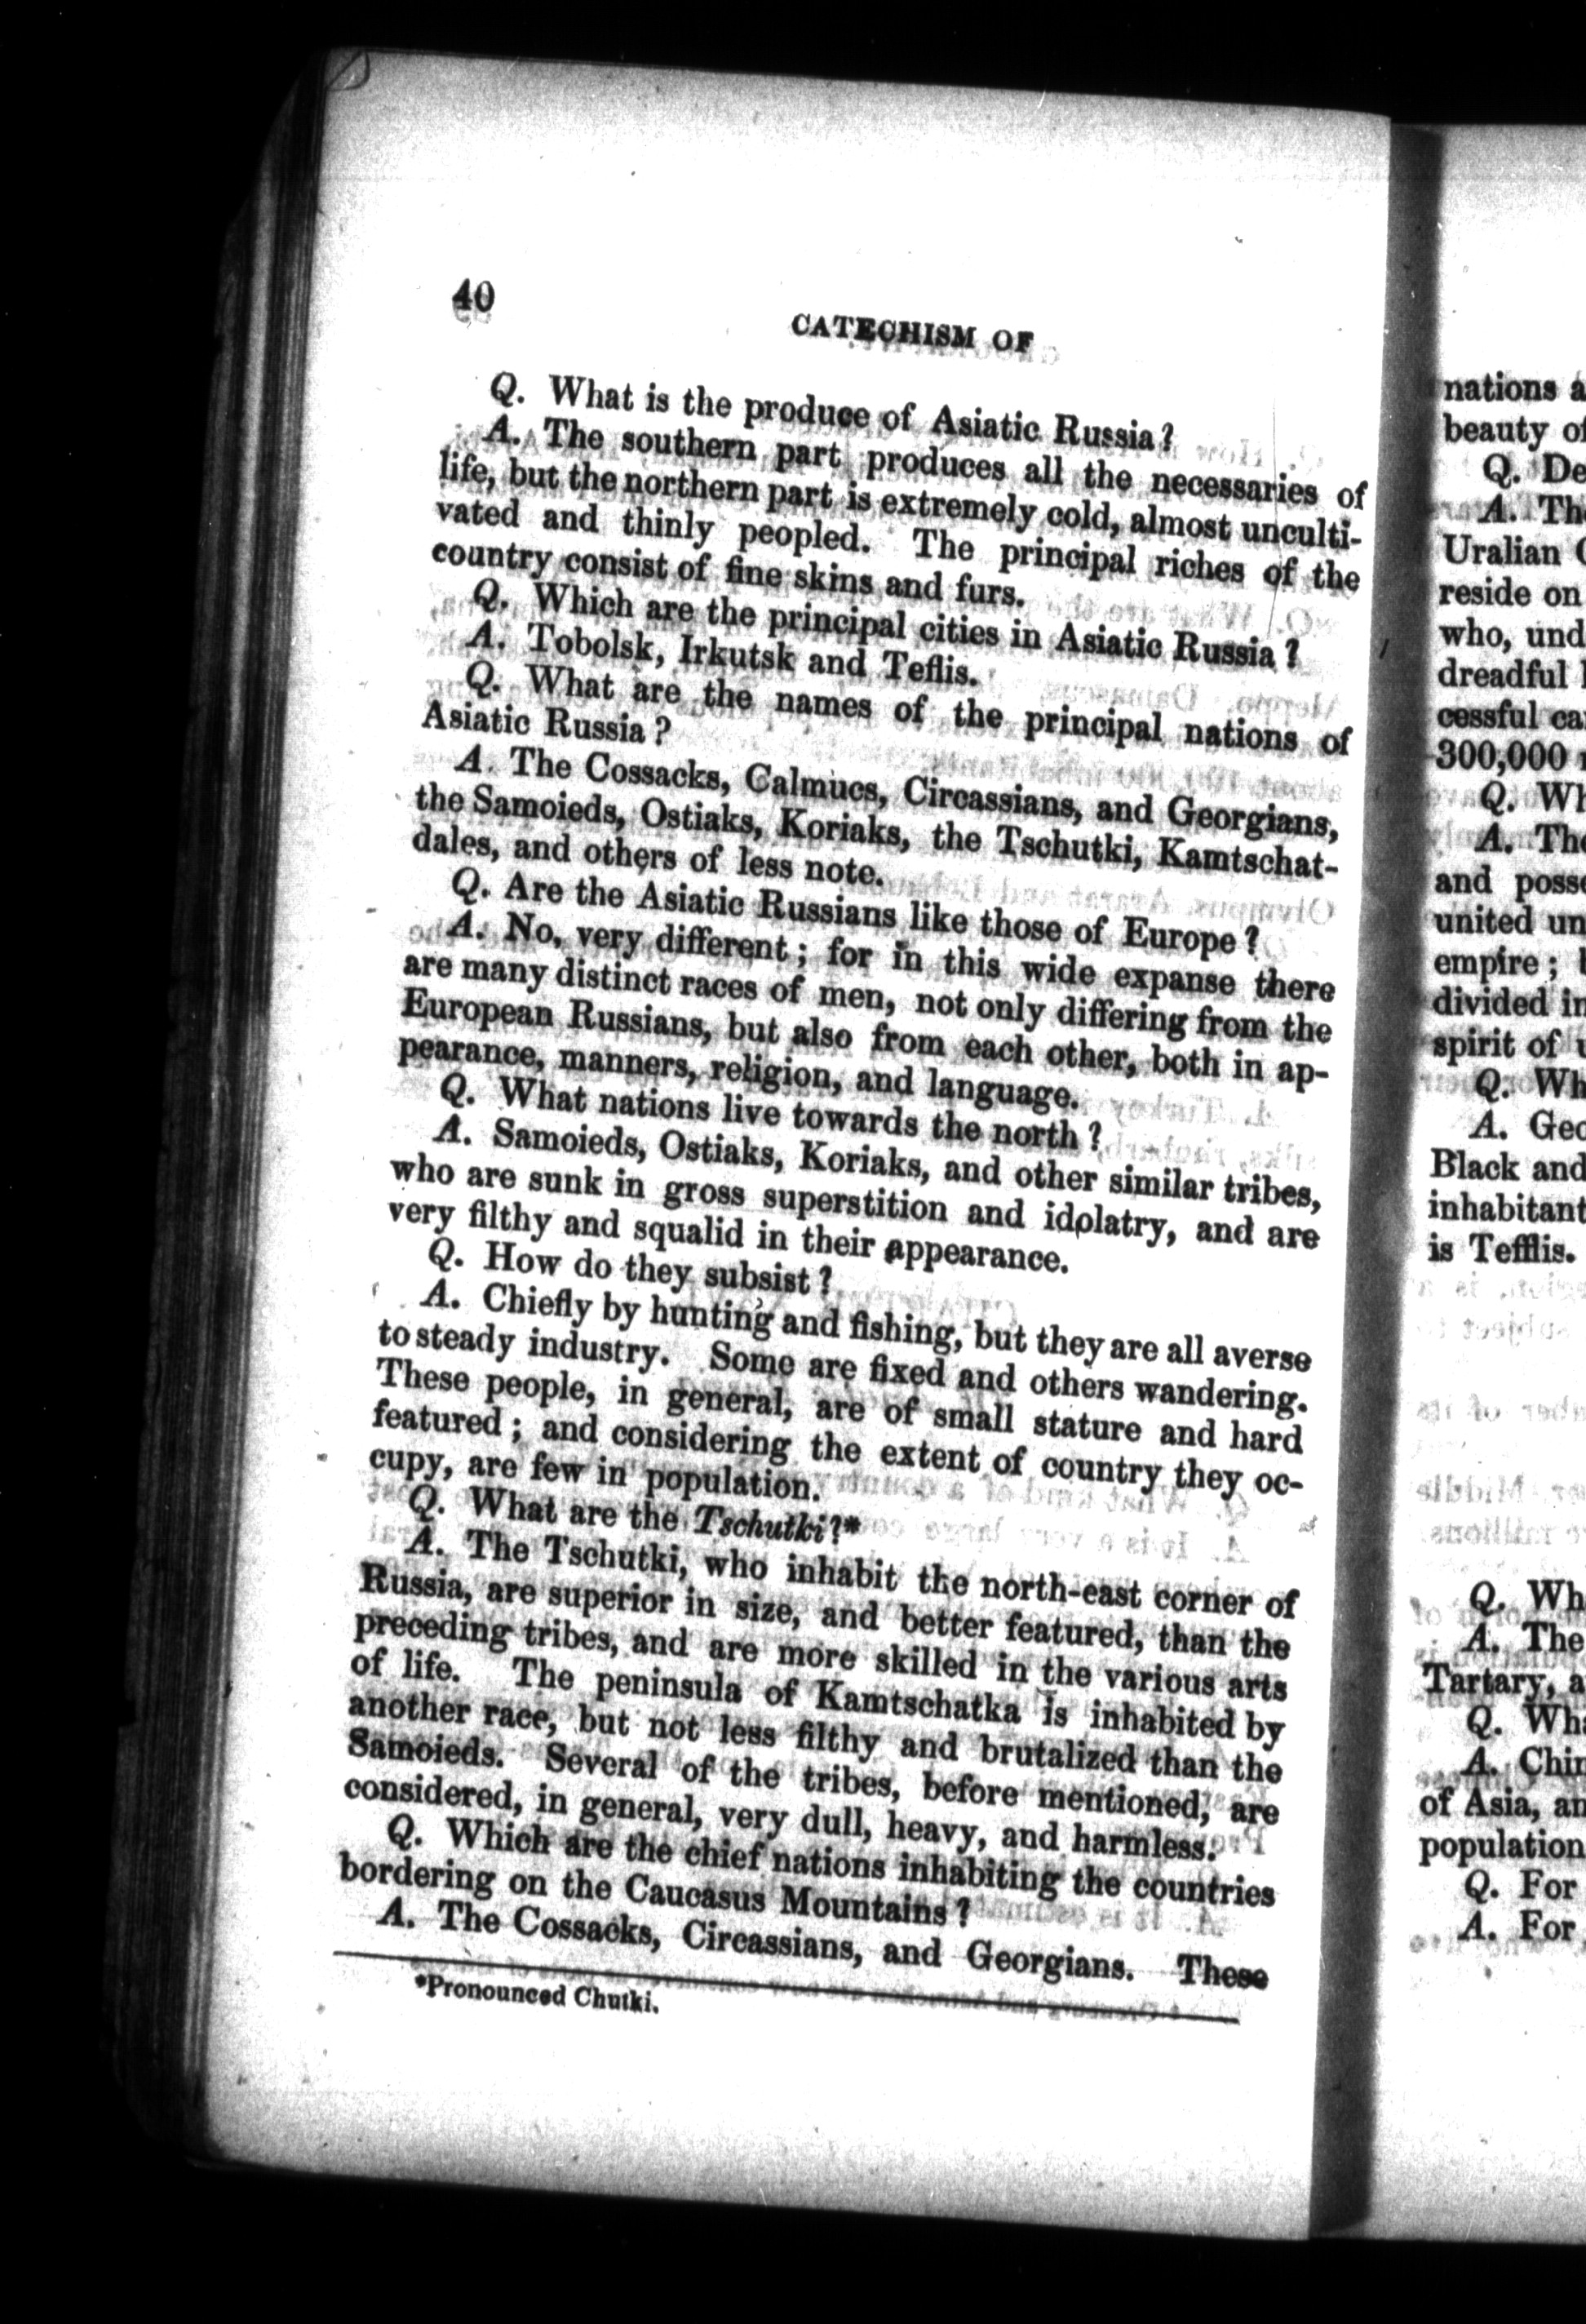 40
CATECHISM OF
Q. What is the produce of Asiatic Russia?
A. The southern part produces all the necessaries of
life, but the northern part is extremely cold, almost unculti-
vated and thinly peopled. The principal riches of the
country consist of fine skins and furs.
Q. Which are the principal cities in Asiatic Russia?
A. Tobolsk, Irkutsk and Teflis.
Q. What are the names of the principal nations of
Asiatic Russia?
A. The Cossacks, Calmucs, Circassians, and Georgians,
the Samoieds, Ostiaks, Koriaks, the Tschutki, Kamtschat-
dales, and others of less note.
Q. Are the Asiatic Russians like those of Europe?
A. No, very different; for in this wide expanse there
are many distinct races of men, not only differing from the
European Russians, but also from each other, both in ap-
pearance, manners, religion, and language.
Q. What nations live towards the north?
A. Samoieds, Ostiaks, Koriaks, and other similar tribes,
who are sunk in gross superstition and idolatry, and are
very filthy and squalid in their appearance.
Q. How do they subsist?
A. Chiefly by hunting and fishing, but they are all averse
to steady industry. Some are fixed and others wandering.
These people, in general, are of small stature and hard
featured; and considering the extent of country they oc-
cupy, are few in population.
Q. What are the Tschutki?*
A. The Tschutki, who inhabit the north-east corner of
Russia, are superior in size, and better featured, than the
preceding tribes, and are more skilled in the various arts
of life. The peninsula of Kamtschatka is inhabited by
another race, but not less filthy and brutalized than the
Samoieds. Several of the tribes, before mentioned, are
considered, in general, very dull, heavy, and harmless.
Q. Which are the chief nations inhabiting the countries
bordering on the Caucasus Mountains?
A. The Cossacks, Circassians, and Georgians. These
*Pronounced Chutki.
nations a
beauty of
Q. De
A. The
Uralian C
reside on
who, und
dreadful
cessful ca
300,000
Q. Wh
A. The
and posse
united un
empire;
divided in
spirit of u
Q. Wh
A. Geo
Black and
inhabitant
is Tefflis.
Q. Wh
A. The
Tartary, a
Q. Wha
A. Chin
of Asia, an
population
Q. For
A. For